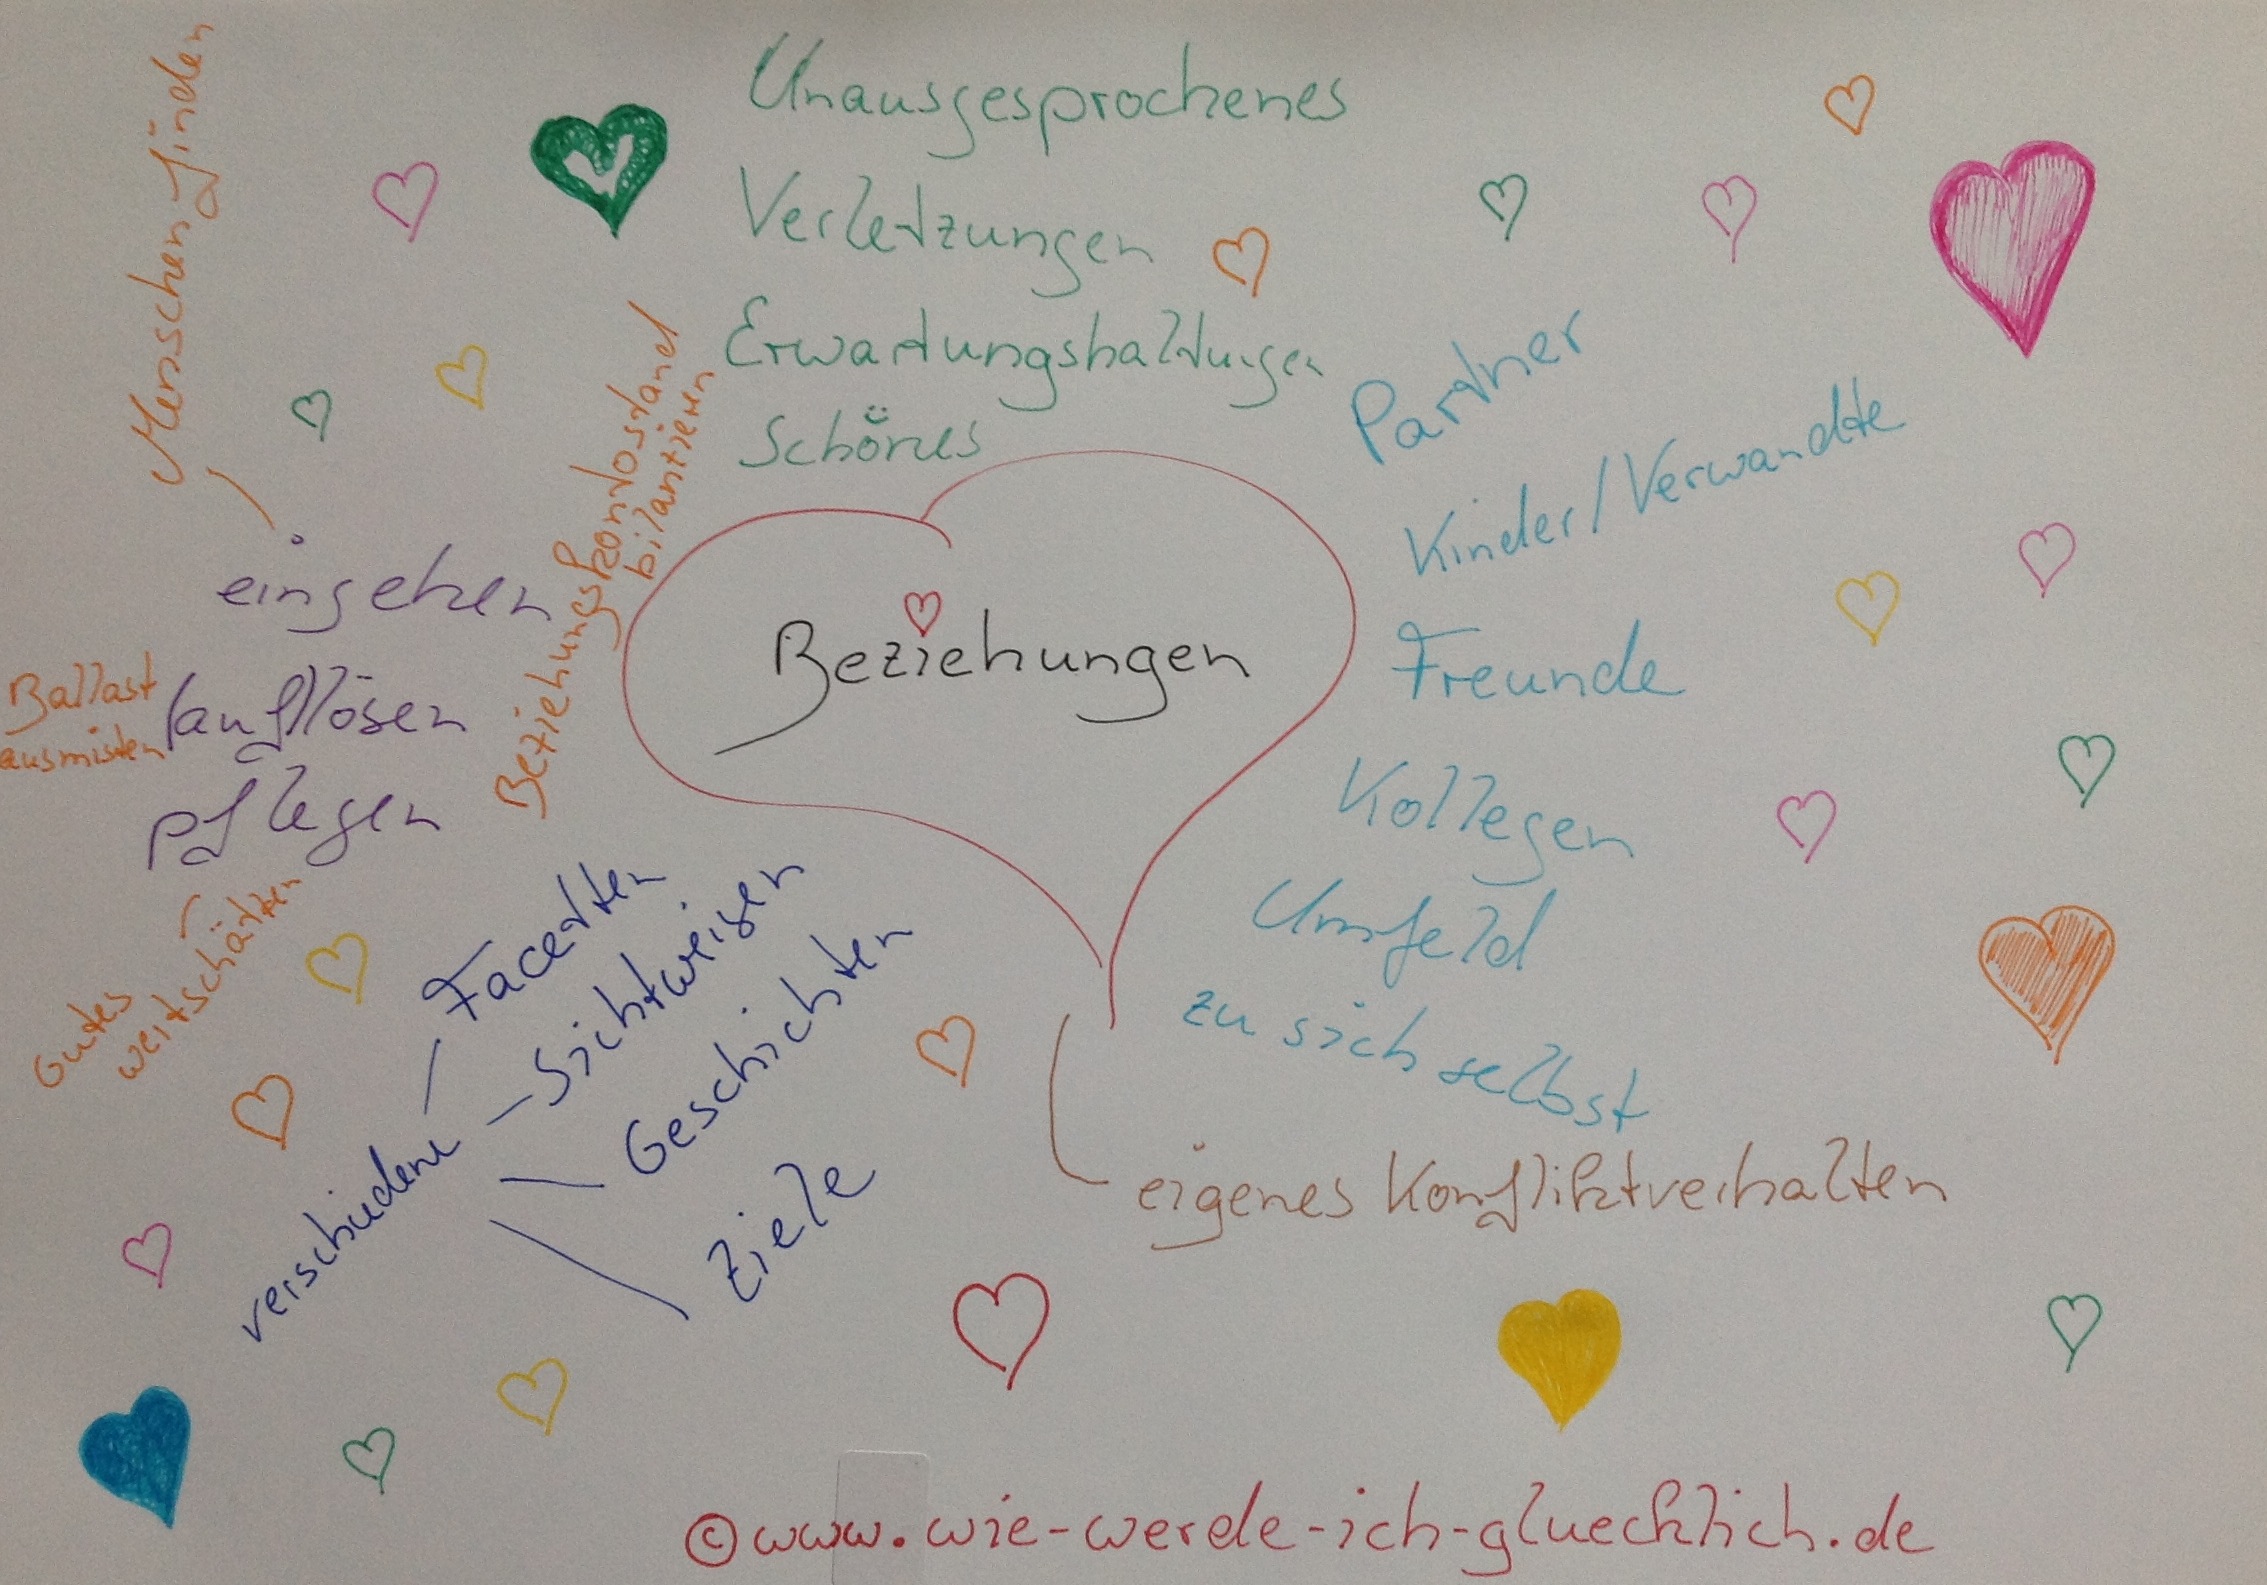 Unausgesprochenes
Verletzungen
Erwartungshaltungen
Schönes
Menschen finden
eingehen
Ballast
ausmisten
(auf)lösen
pflegen
Gutes
wertschätzen
Beziehungskontostand
bilanzieren
Beziehungen
Partner
Kinder/Verwandte
Freunde
Kollegen
Umfeld
zu sich selbst
eigenes Konfliktverhalten
verschiedene
Facetten
Sichtweisen
Geschichten
Ziele
©www.wie-werde-ich-gluecklich.de